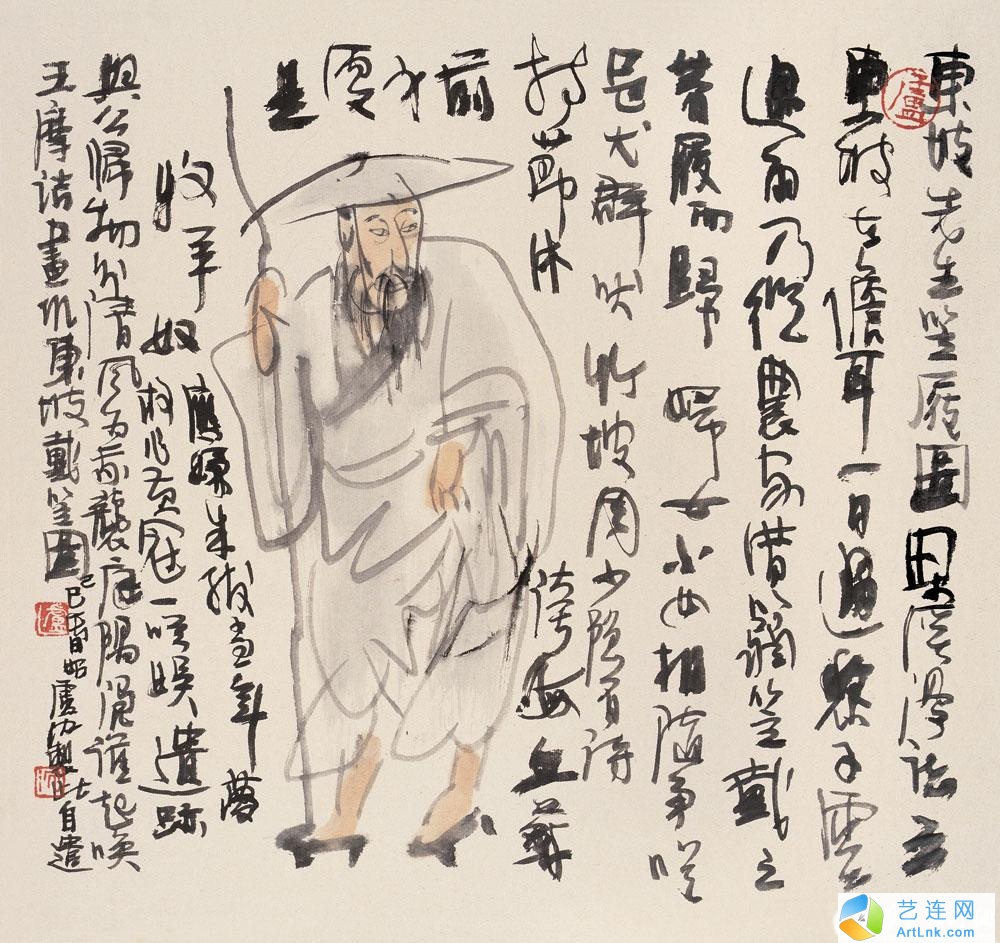 東坡先生笠屐圖 溪漫誌云
東坡在儋耳一日過黎子雲
遇雨乃從農家借蒻笠戴之
著屐而歸婦女小兒相隨爭笑
邑犬群吠竹坡周少隱有詩
持節休誇海上蘇
前身便是
牧羊奴應嫌朱紱當年夢
故作黃冠一笑娛遺跡
與公歸物外清風為我襲庭隅憑誰起喚
王摩詰畫作東坡戴笠圖
己巳 盧沉製此自遣
盧
盧
沉
艺连网
ArtLnk.com